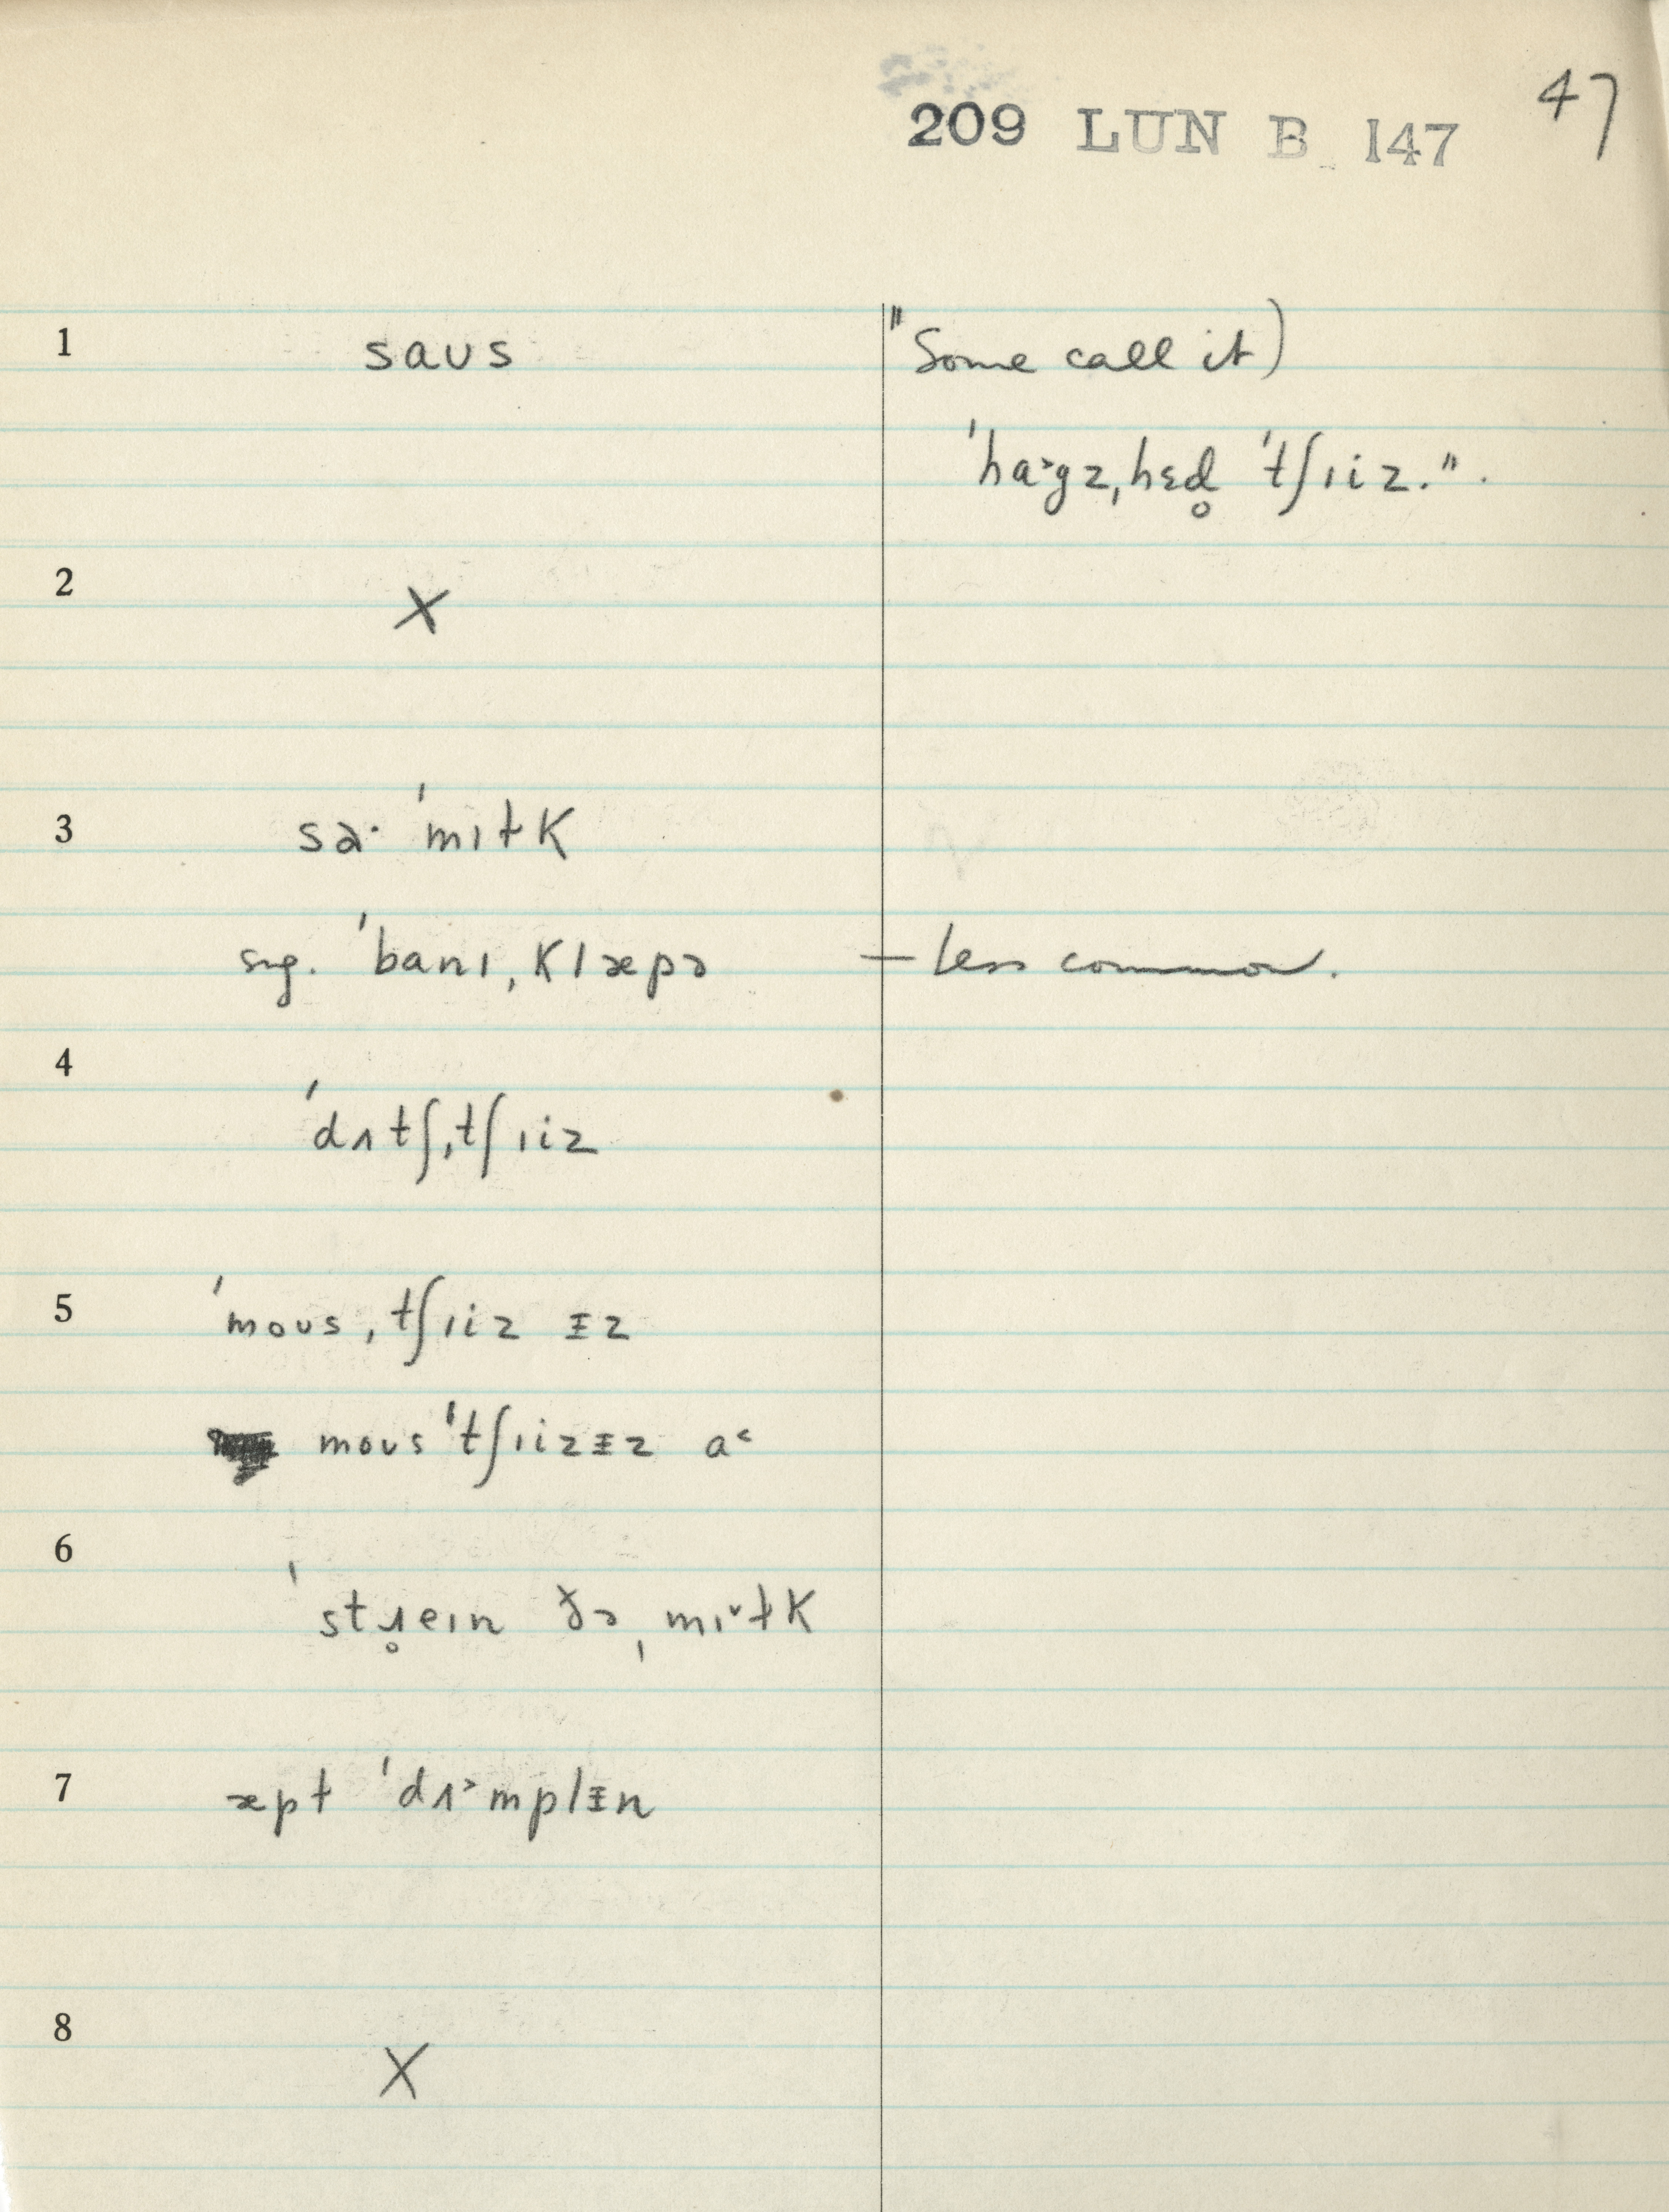 209 LUN B 147 47
1 saʊs "Some call it)
ˈhaˑ˃gz,hɛd̥ ˈtʃɪiz.".
2 X
3 saˑ ˈmɪɫk
sug. ˈbanɪ,klæpə — less common.
4 ˈdʌtʃ,tʃɪiz
5 ˈmoʊs,tʃɪiz ᵻz
moʊs ˈtʃɪizᵻz a˂
6 ˈstɹ̥eɪn ðə ˌmɪ˅ɫk
7 æpɫ ˈdʌ˃mplᵻn
8 X